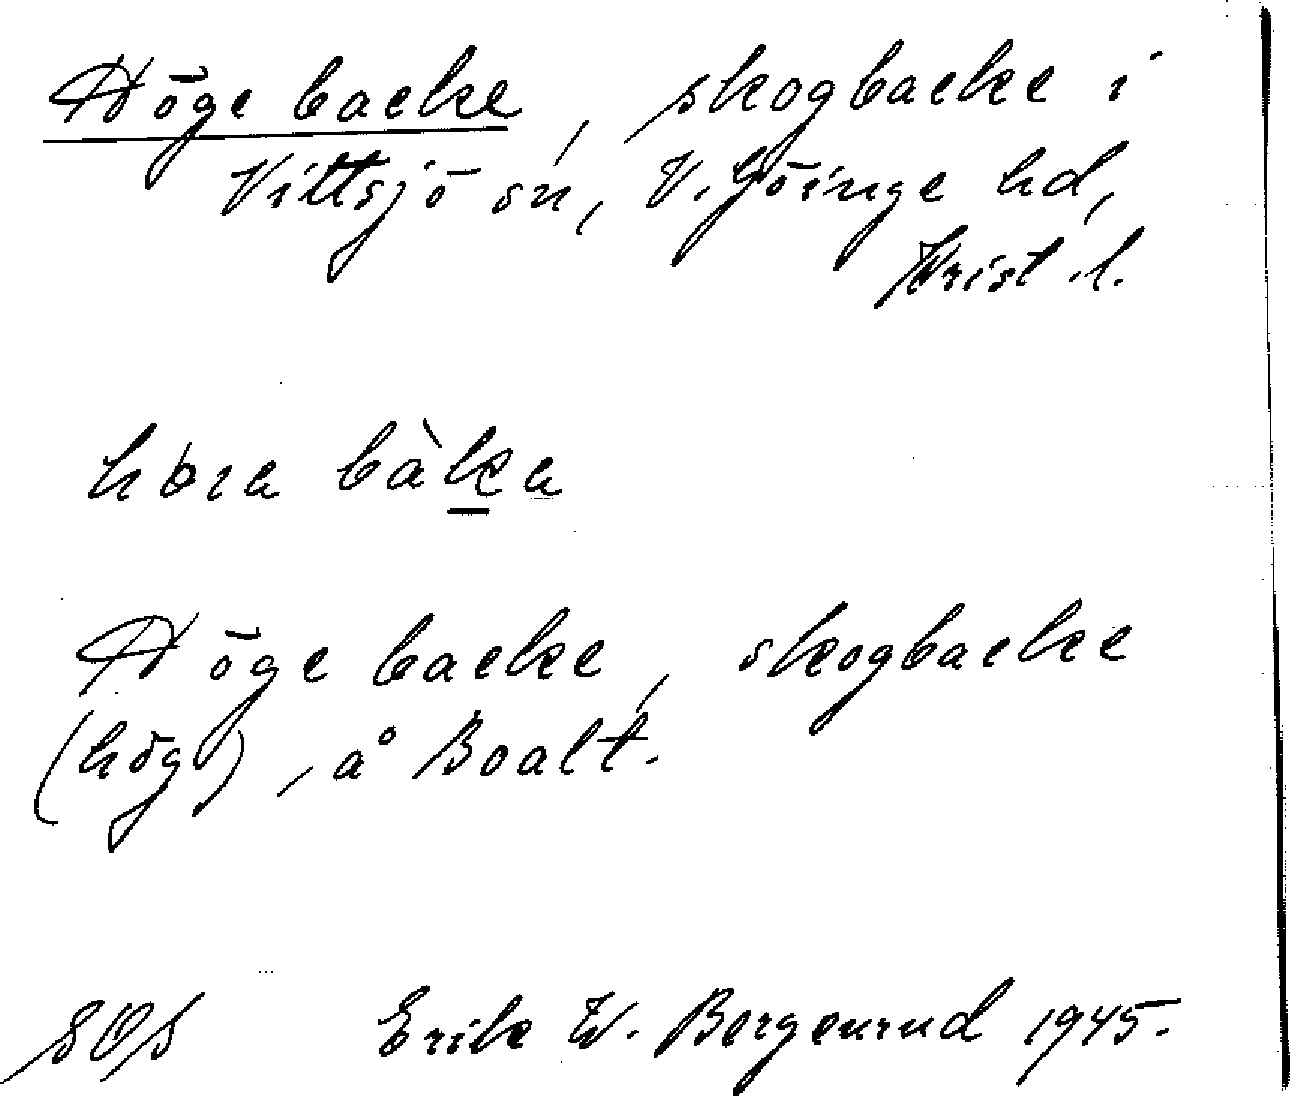 Höge backe, skogbacke i
Vittsjö sn, V. Göinge hd,
Krist. l.
høıa bàka
Höge backe, skogbacke
(hög), å Boalt.
SOS Erik W. Bergenrud 1945.